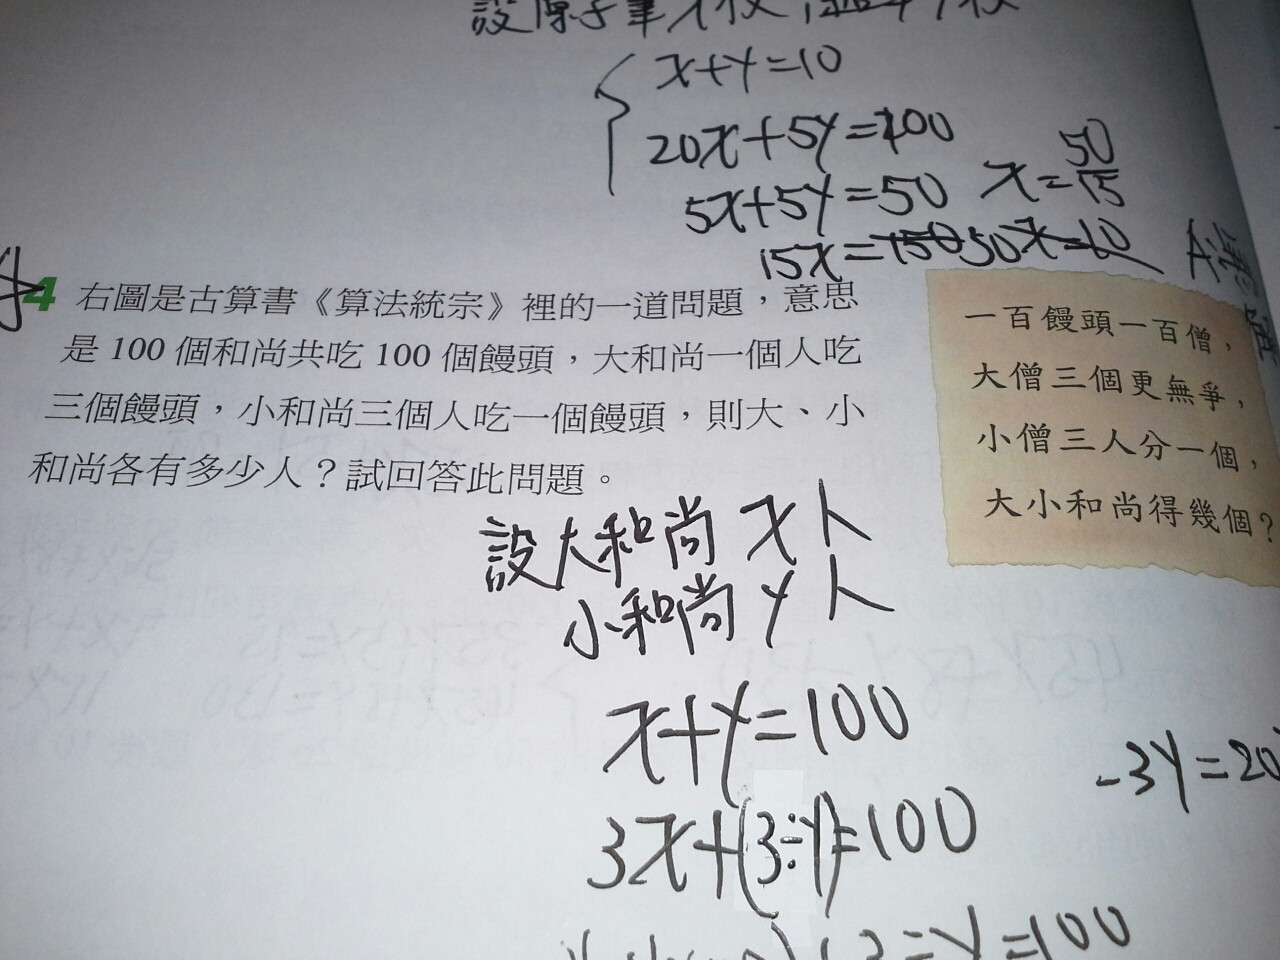 x+y=10
20x+5y=100
5x+5y=50
x=50/15
15x=150 50 x=10
4 右圖是古算書《算法統宗》裡的一道問題，意思
是 100 個和尚共吃 100 個饅頭，大和尚一個人吃
三個饅頭，小和尚三個人吃一個饅頭，則大、小
和尚各有多少人？試回答此問題。
一百饅頭一百僧，
大僧三個更無爭，
小僧三人分一個，
大小和尚得幾個？
設大和尚 x人
小和尚 y人
x+y=100
3x+(3÷y)=100
-3y=20